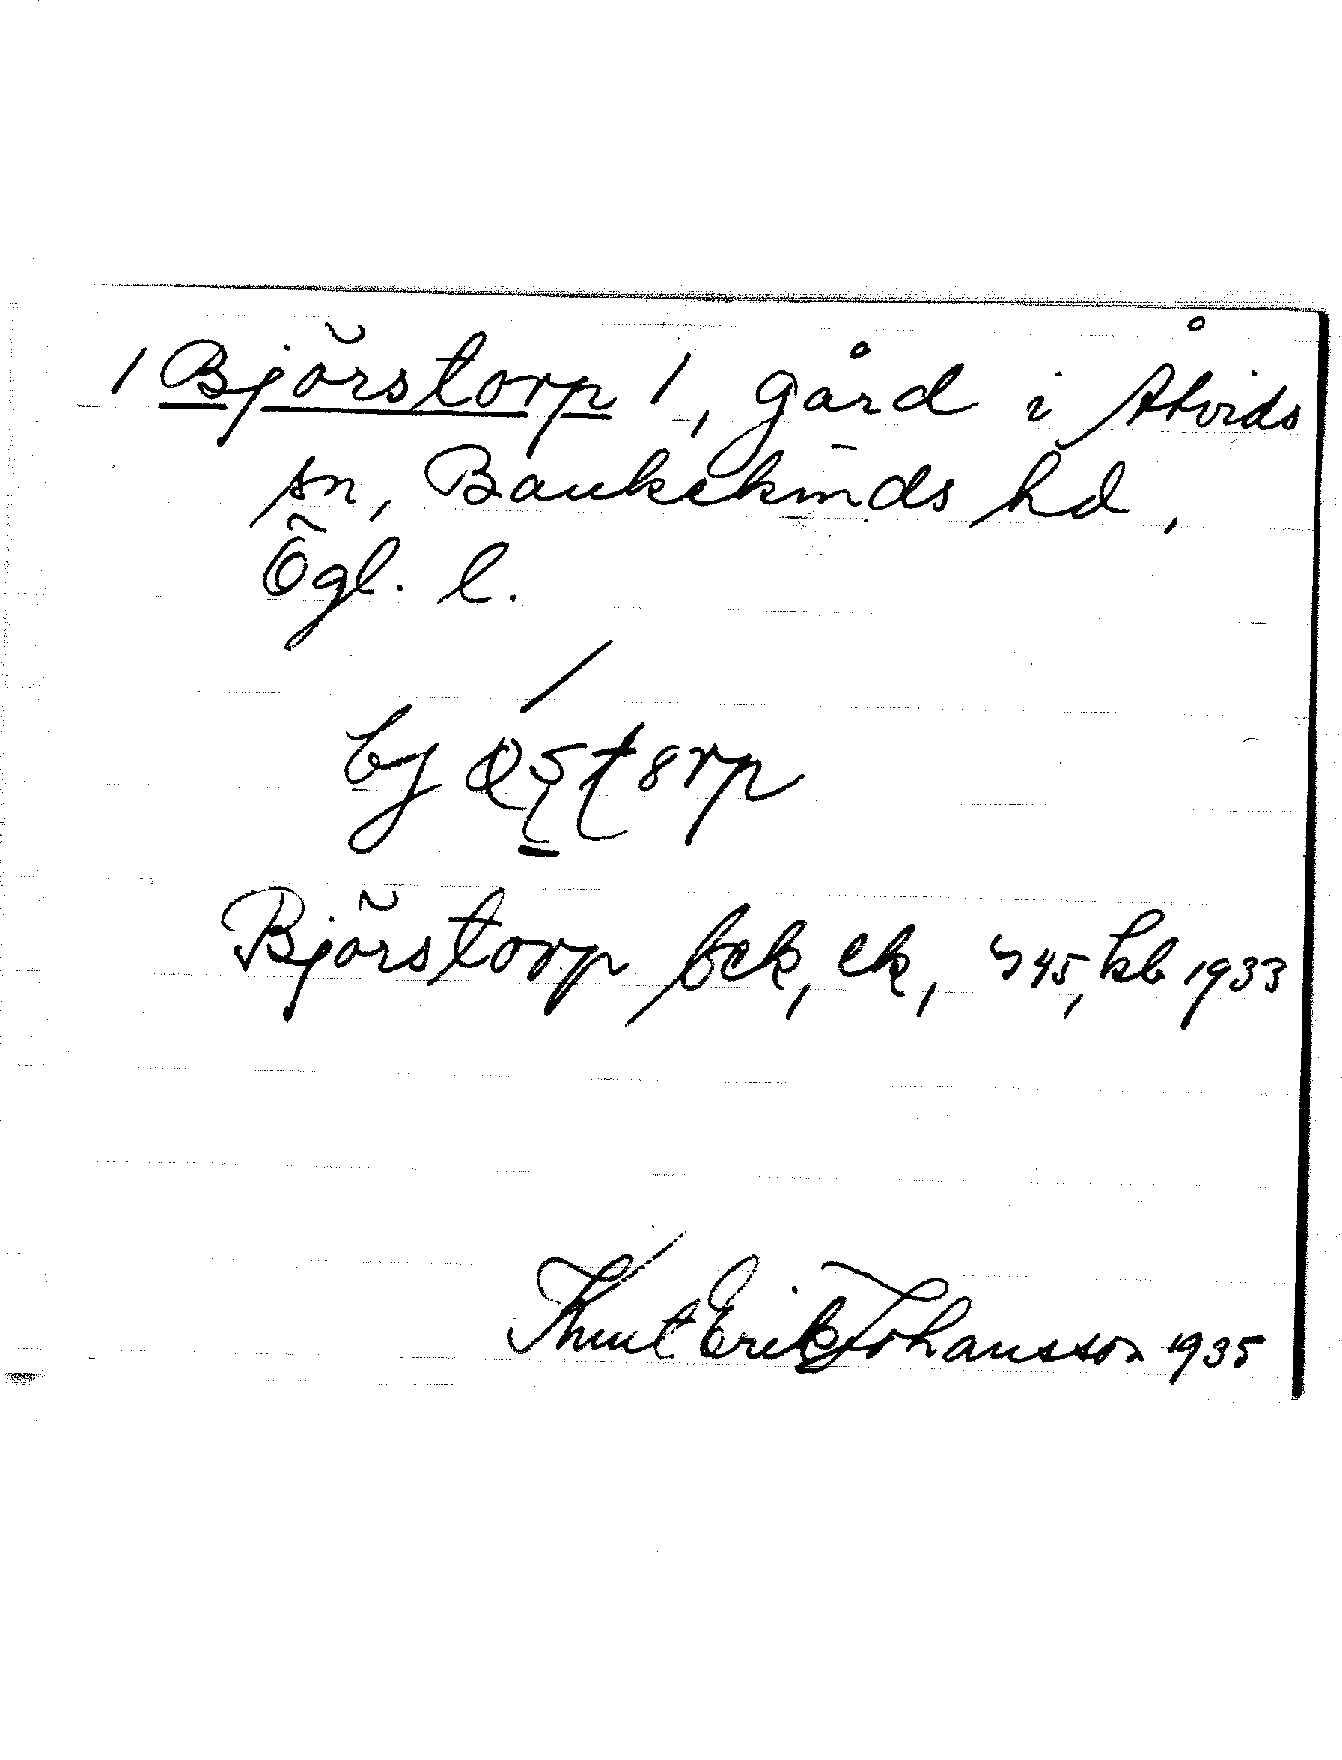 / Björstorp /, gård i Åtvids
sn, Bankekinds hd,
Ögl. l.
Björstorp fck, ek, 45, kb 1933
Knut Erik Johansson 1935